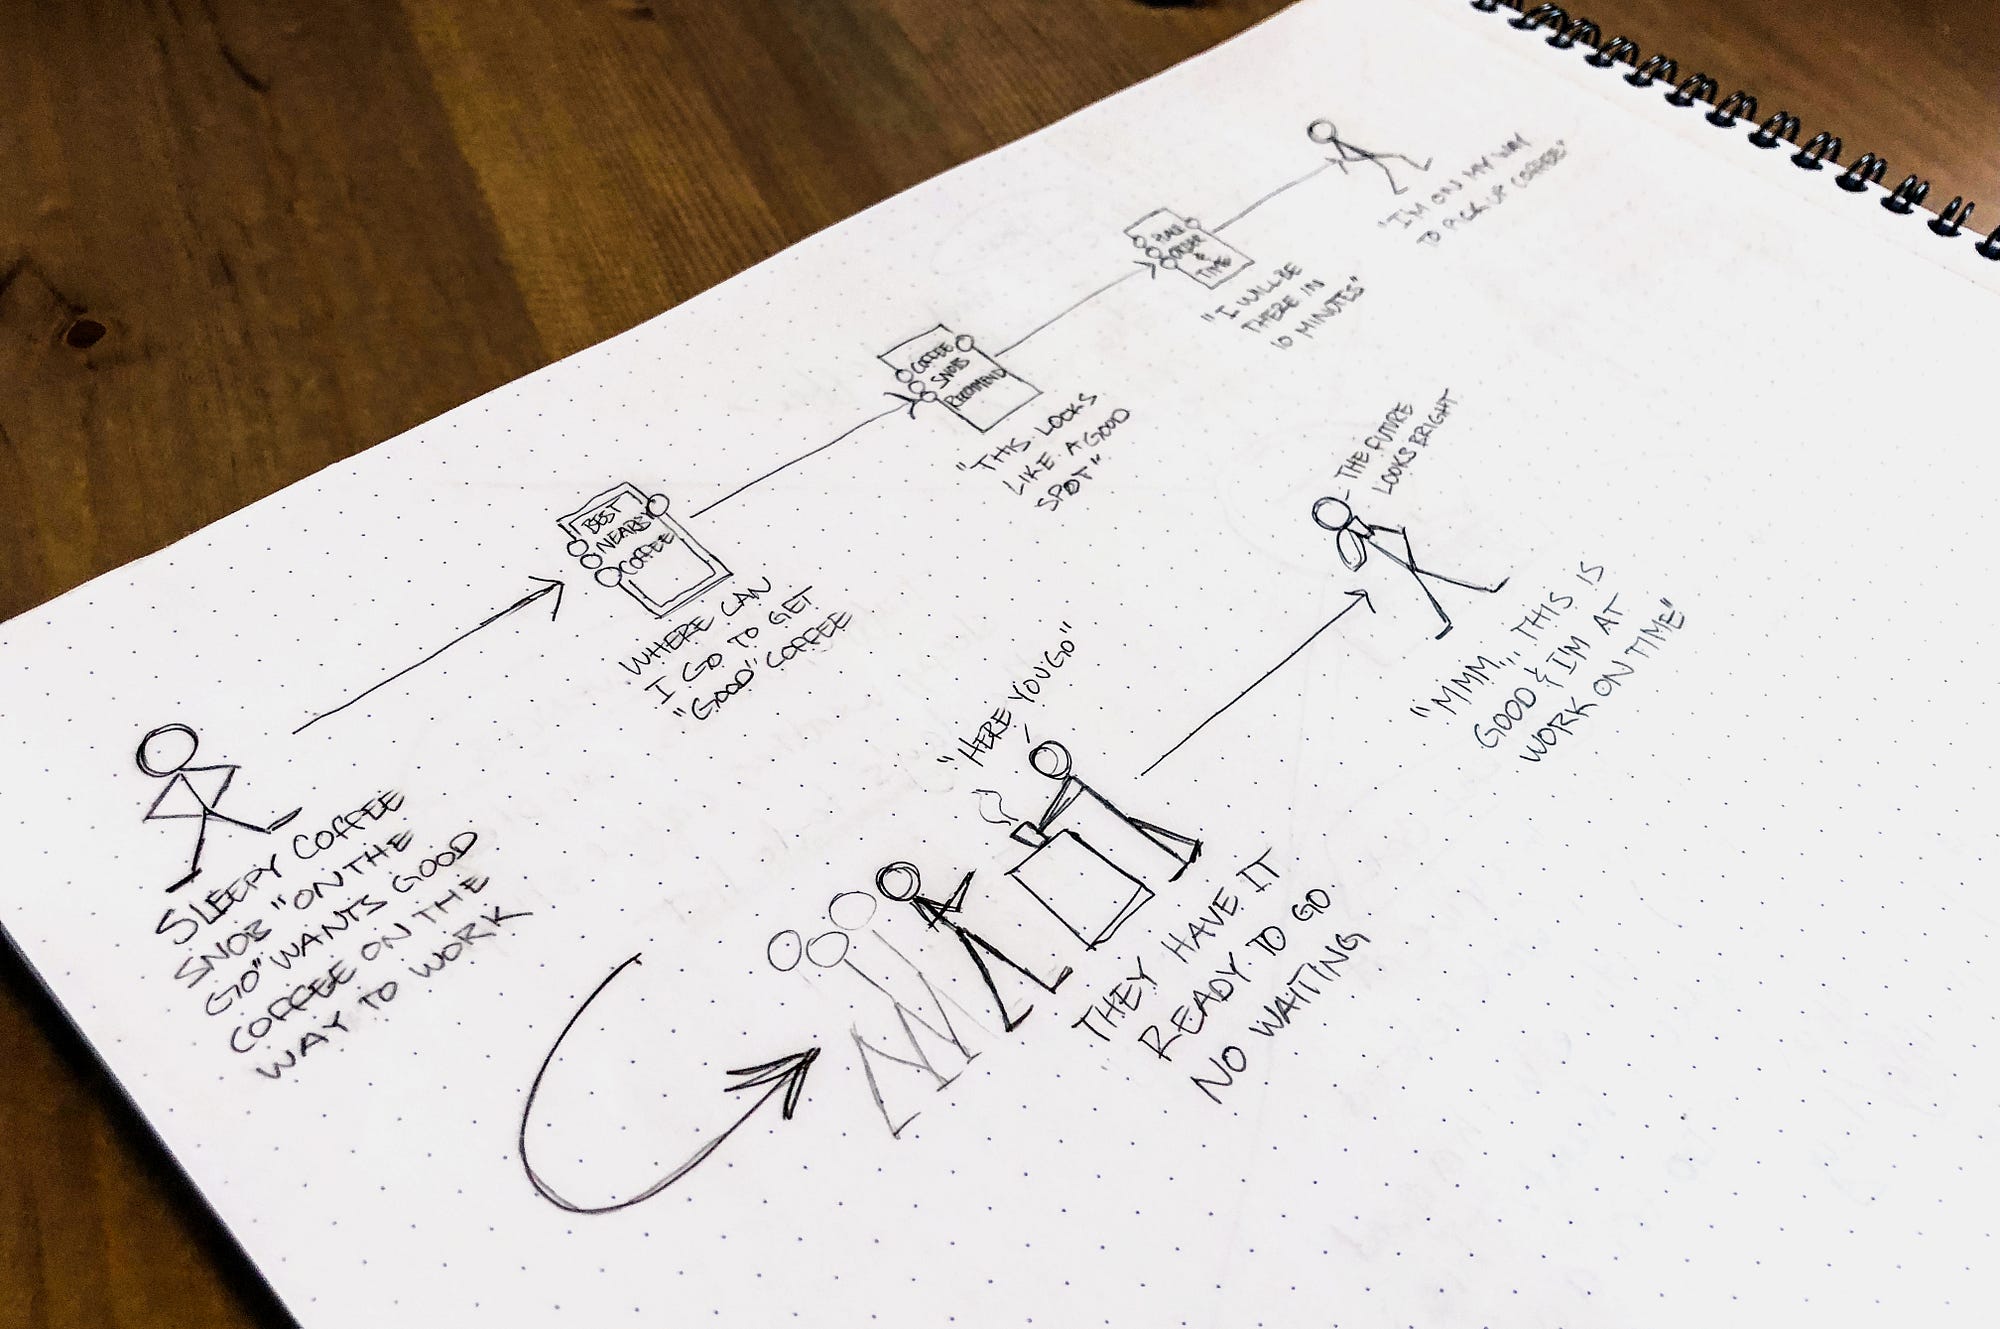 SLEEPY COFFEE
SNOB "ON THE
GO" WANTS GOOD
COFFEE ON THE
WAY TO WORK
BEST
NEARBY
COFFEE
WHERE CAN
I GO TO GET
"GOOD" COFFEE
COFFEE
SNOBS
RECOMMEND
"THIS LOOKS
LIKE A GOOD
SPOT"
ORDER
&
TIME
"I WILL BE
THERE IN
10 MINUTES"
"I'M ON MY WAY
TO PICK UP COFFEE"
"HERE YOU GO"
THEY HAVE IT
READY TO GO
NO WAITING
THE FUTURE
LOOKS BRIGHT
"MMM... THIS IS
GOOD & I'M AT
WORK ON TIME"